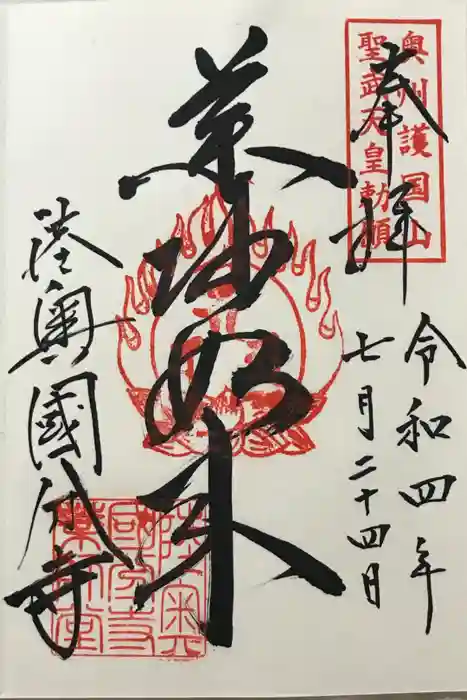 奉拝
奥州護国山
聖武天皇勅願
令和四年
七月二十四日
薬師如来
陸奥國分寺
陸奥
国分寺
薬師堂